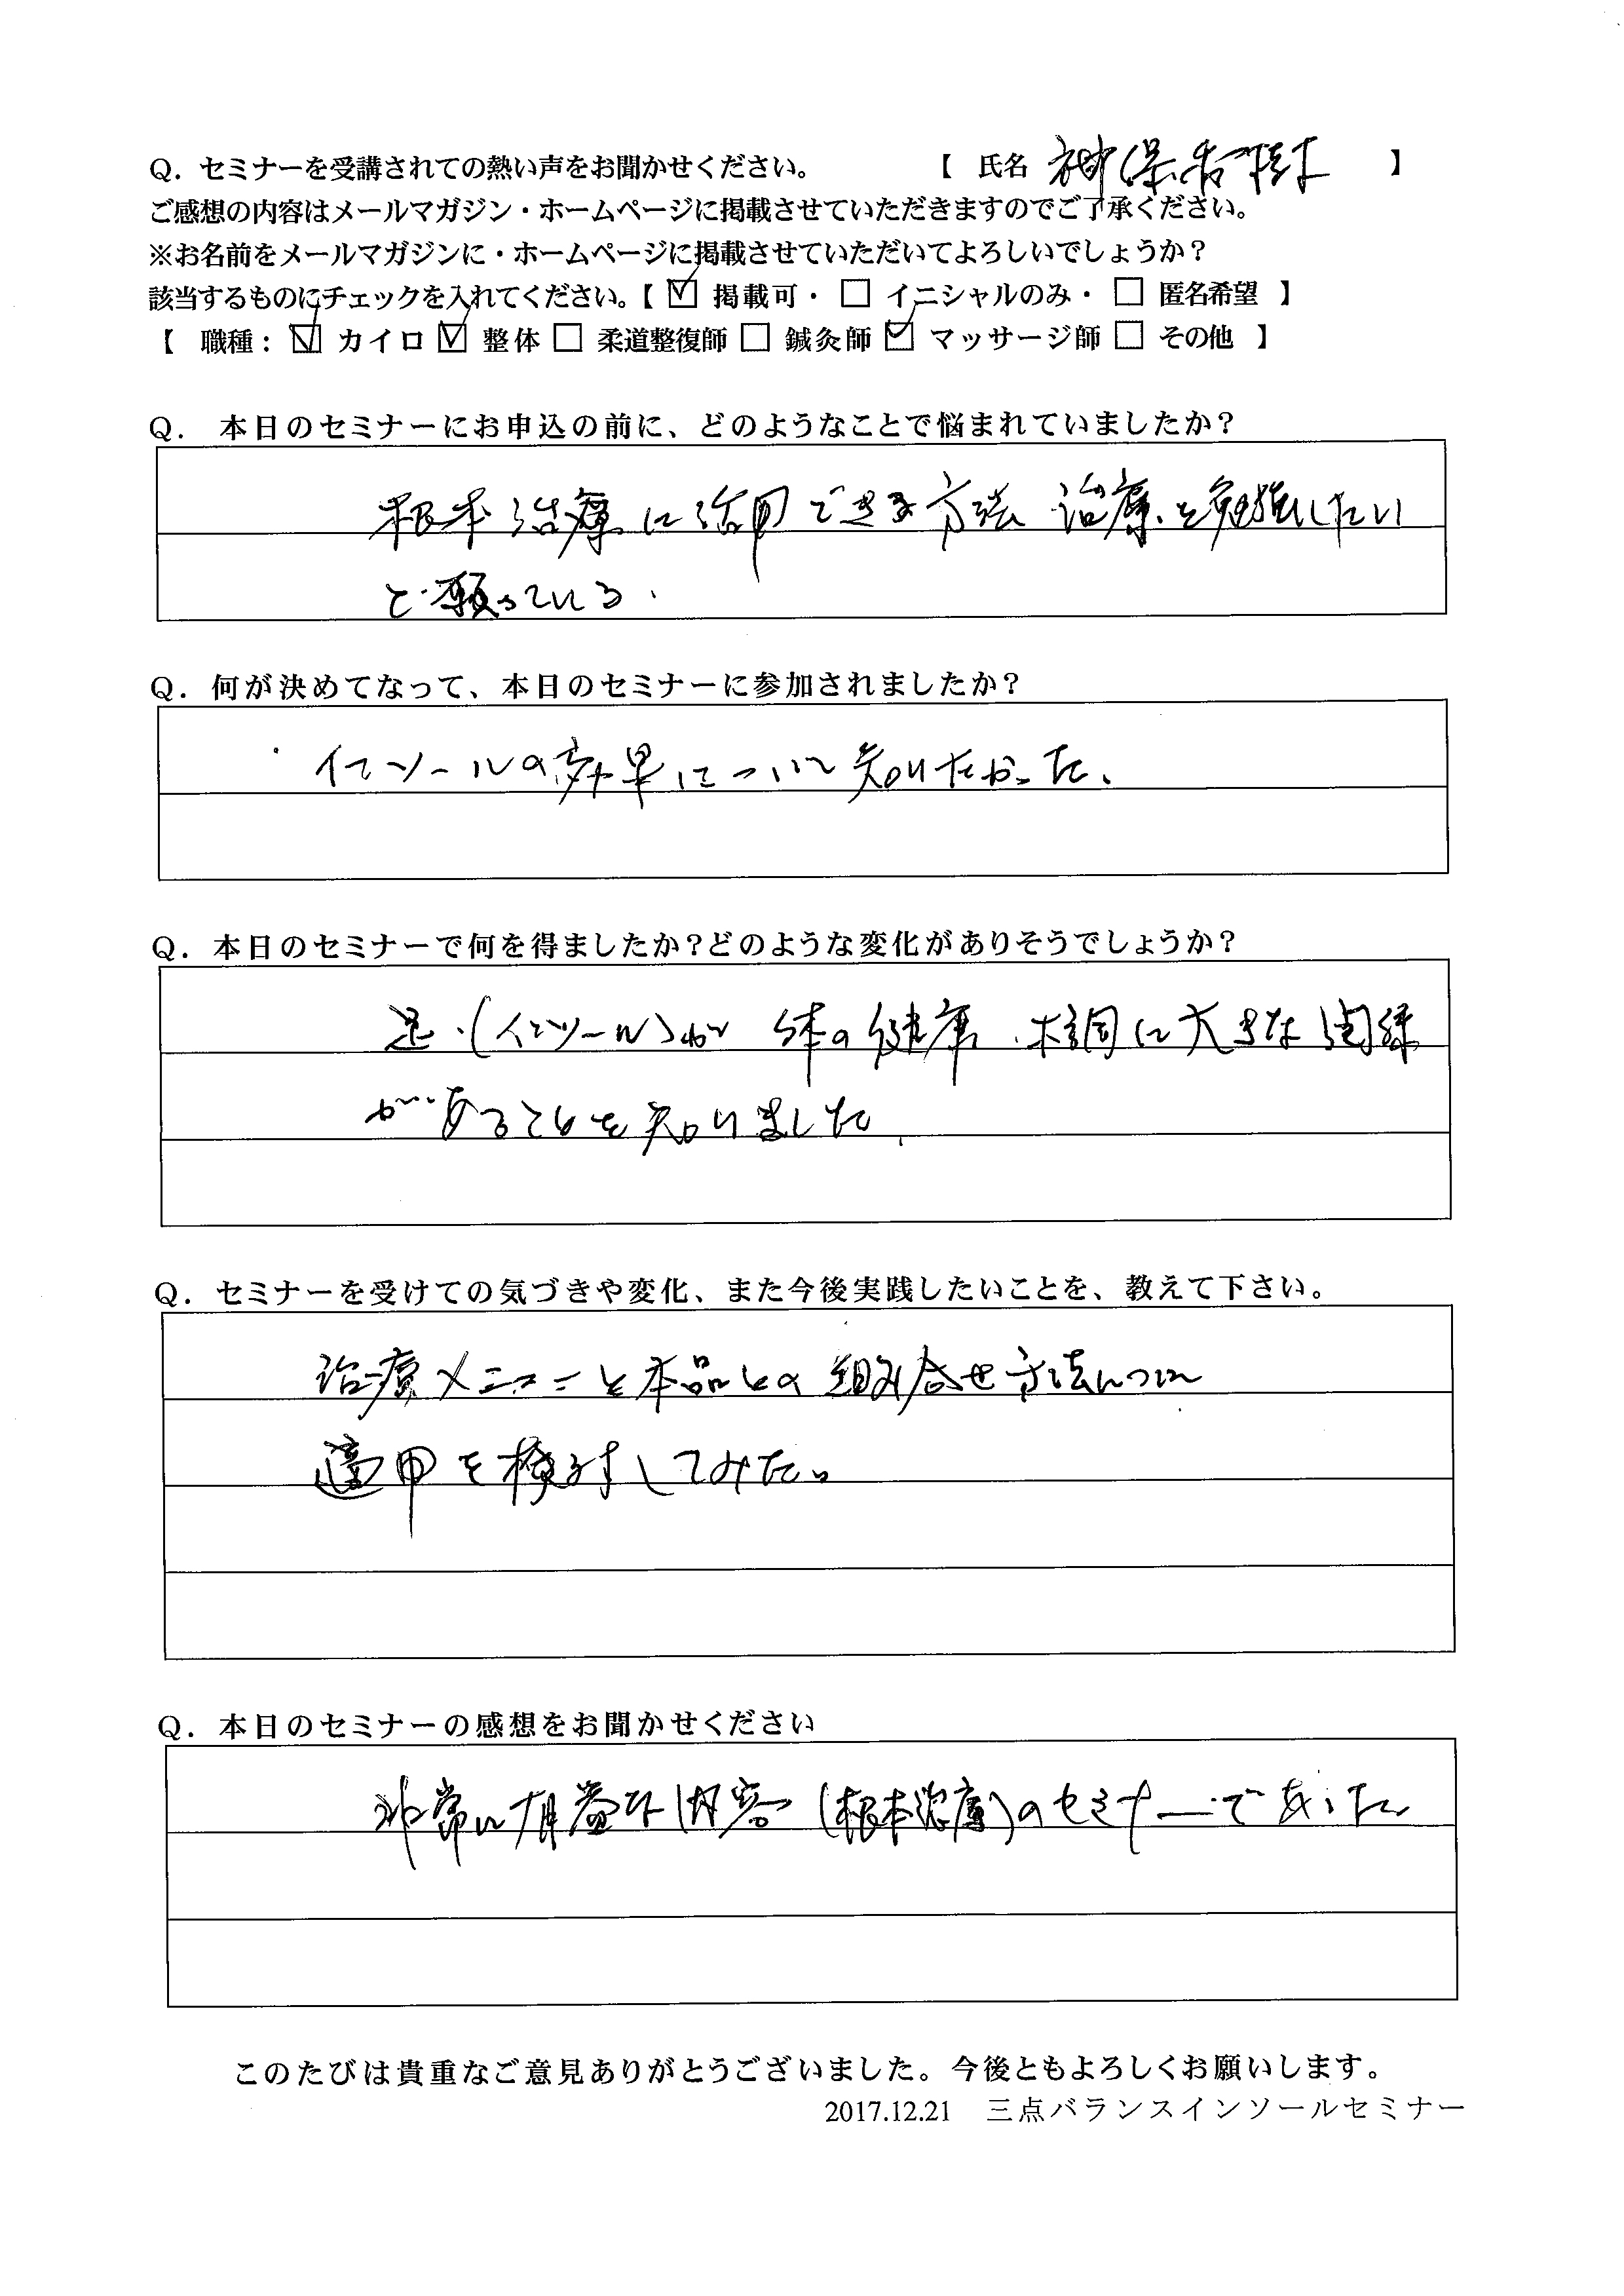 Q. セミナーを受講されての熱い声をお聞かせください。 【 氏名 神保 樹 】
ご感想の内容はメールマガジン・ホームページに掲載させていただきますのでご了承ください。
※お名前をメールマガジンに・ホームページに掲載させていただいてよろしいでしょうか？
該当するものにチェックを入れてください。【 ☑ 掲載可・ □ イニシャルのみ・ □ 匿名希望 】
【 職種： ☑ カイロ ☑ 整体 □ 柔道整復師 □ 鍼灸師 ☑ マッサージ師 □ その他 】
Q. 本日のセミナーにお申込の前に、どのようなことで悩まれていましたか？
根本治療に活用できる方法 治療を勉強したい
と願っている.
Q. 何が決めてなって、本日のセミナーに参加されましたか？
・インソールの効果について知りたかった、
Q. 本日のセミナーで何を得ましたか？どのような変化がありそうでしょうか？
足・(インソール)が 体の健康、体調に大きな関係
があることを知りました.
Q. セミナーを受けての気づきや変化、また今後実践したいことを、教えて下さい。
治療メニューと本品との組み合せ方法について
適用を検討してみたい
Q. 本日のセミナーの感想をお聞かせください
非常に有益な内容(根本治療)のセミナーであった
このたびは貴重なご意見ありがとうございました。今後ともよろしくお願いします。
2017.12.21 三点バランスインソールセミナー